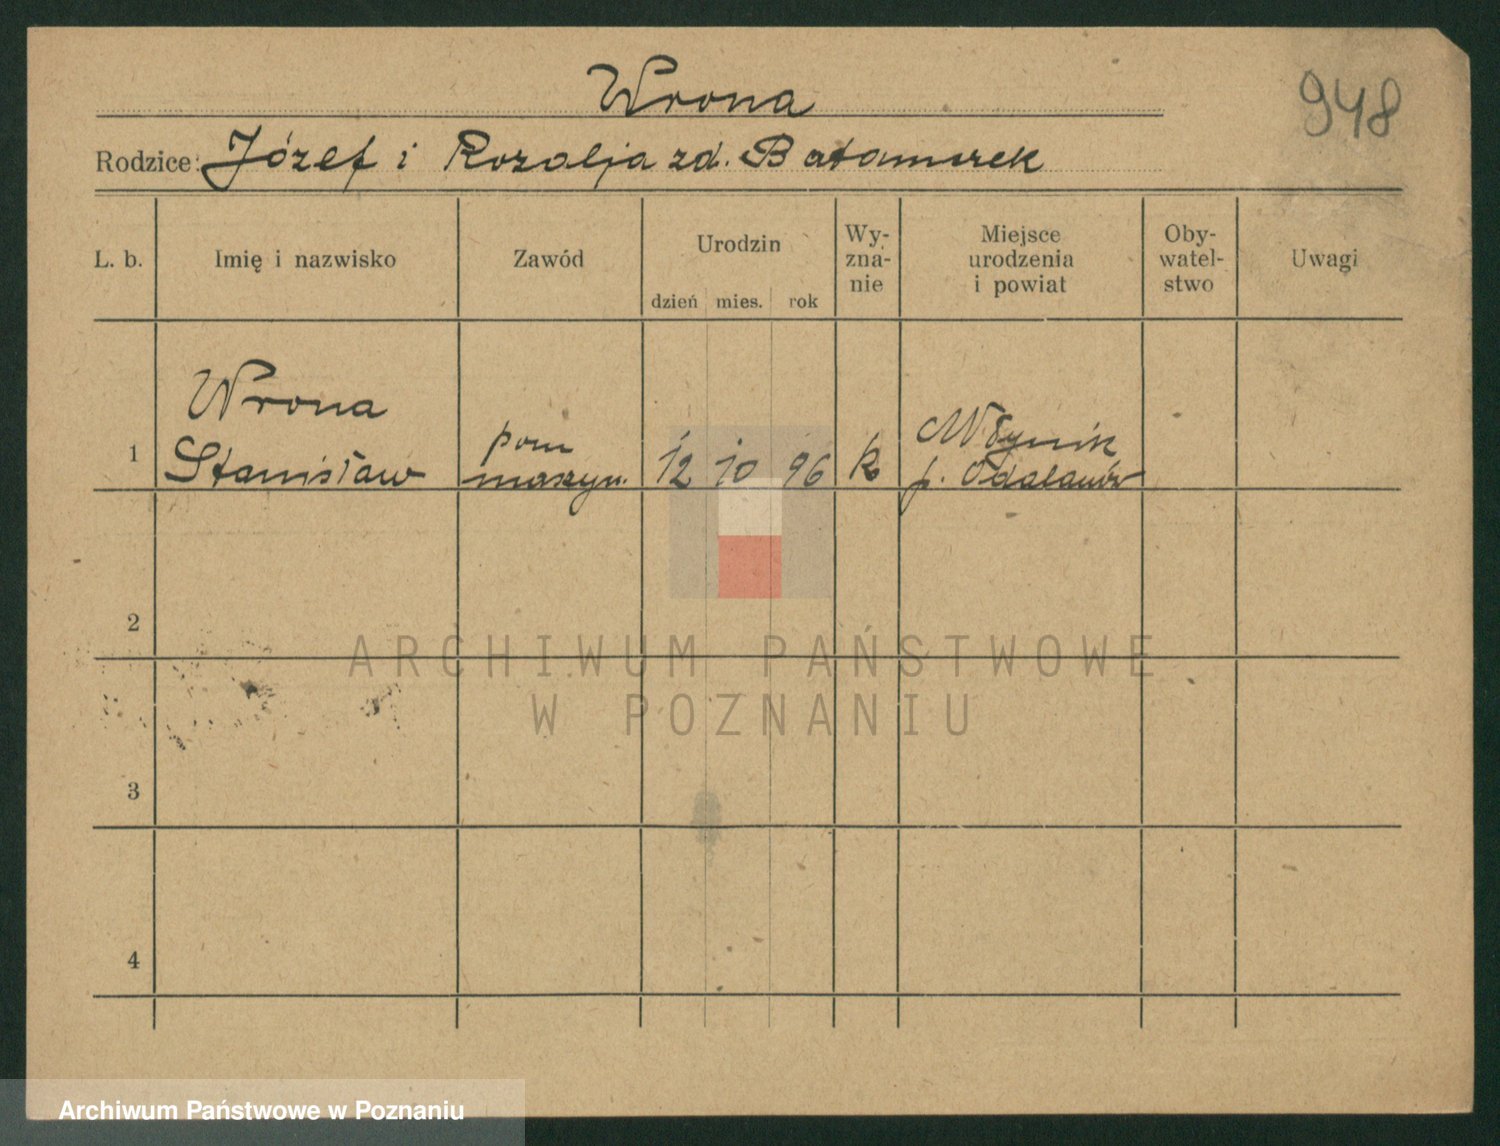 Wrona
948
Rodzice: Józef i Rozalja zd. Batamrek
L. b.
Imię i nazwisko
Zawód
Urodzin
dzień mies. rok
Wy-
zna-
nie
Miejsce
urodzenia
i powiat
Oby-
watel-
stwo
Uwagi
1
Wrona
Stanisław
pom
maszyn.
12 10 96
k
Młynik
p. Odalanów
2
3
4
ARCHIWUM PAŃSTWOWE
W POZNANIU
Archiwum Państwowe w Poznaniu